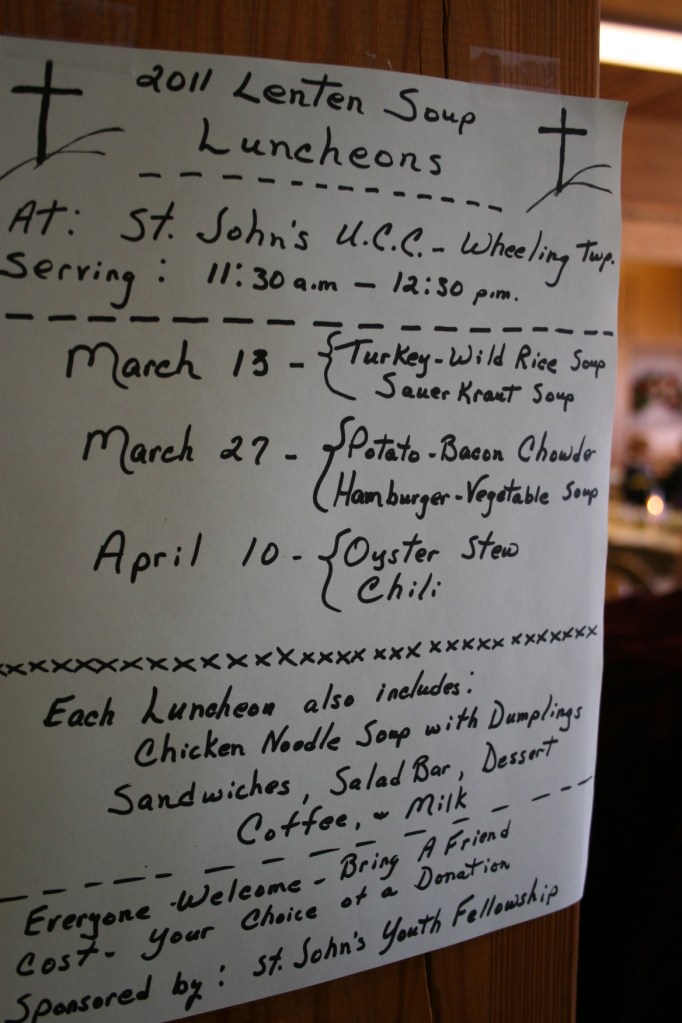 2011 Lenten Soup
Luncheons
At: St. John's U.C.C. - Wheeling Twp.
Serving: 11:30 a.m - 12:30 p.m.
March 13 - { Turkey-Wild Rice Soup
Sauer Kraut Soup
March 27 - { Potato-Bacon Chowder
Hamburger-Vegetable Soup
April 10 - { Oyster Stew
Chili
xxxxxxxxxxxxxxxxxxxxxx xxx xxxxx xxxxxxx
Each Luncheon also includes:
Chicken Noodle Soup with Dumplings
Sandwiches, Salad Bar, Dessert
Coffee, & Milk
Everyone -Welcome- Bring A Friend
Cost- Your Choice of a Donation
Sponsored by: St. John's Youth Fellowship